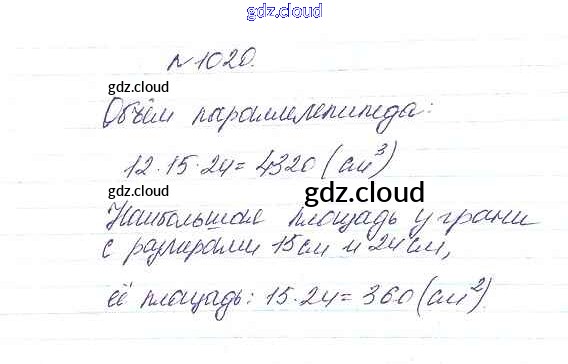 gdz.cloud
№1020.
gdz.cloud
Объём параллелепипеда:
12·15·24=4320(см³)
gdz.cloud gdz.cloud
Наибольшая площадь у грани
с размерами 15см и 24см,
gdz.cloud
её площадь: 15·24=360(см²).